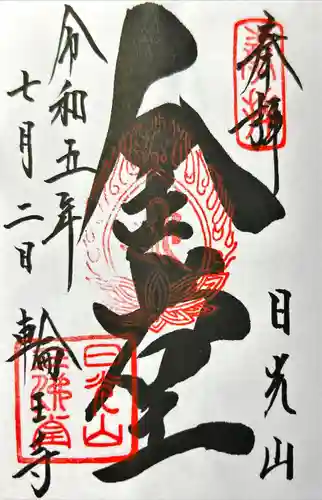 奉拝
日光山
金堂
令和五年
七月二日
輪王寺
日光山